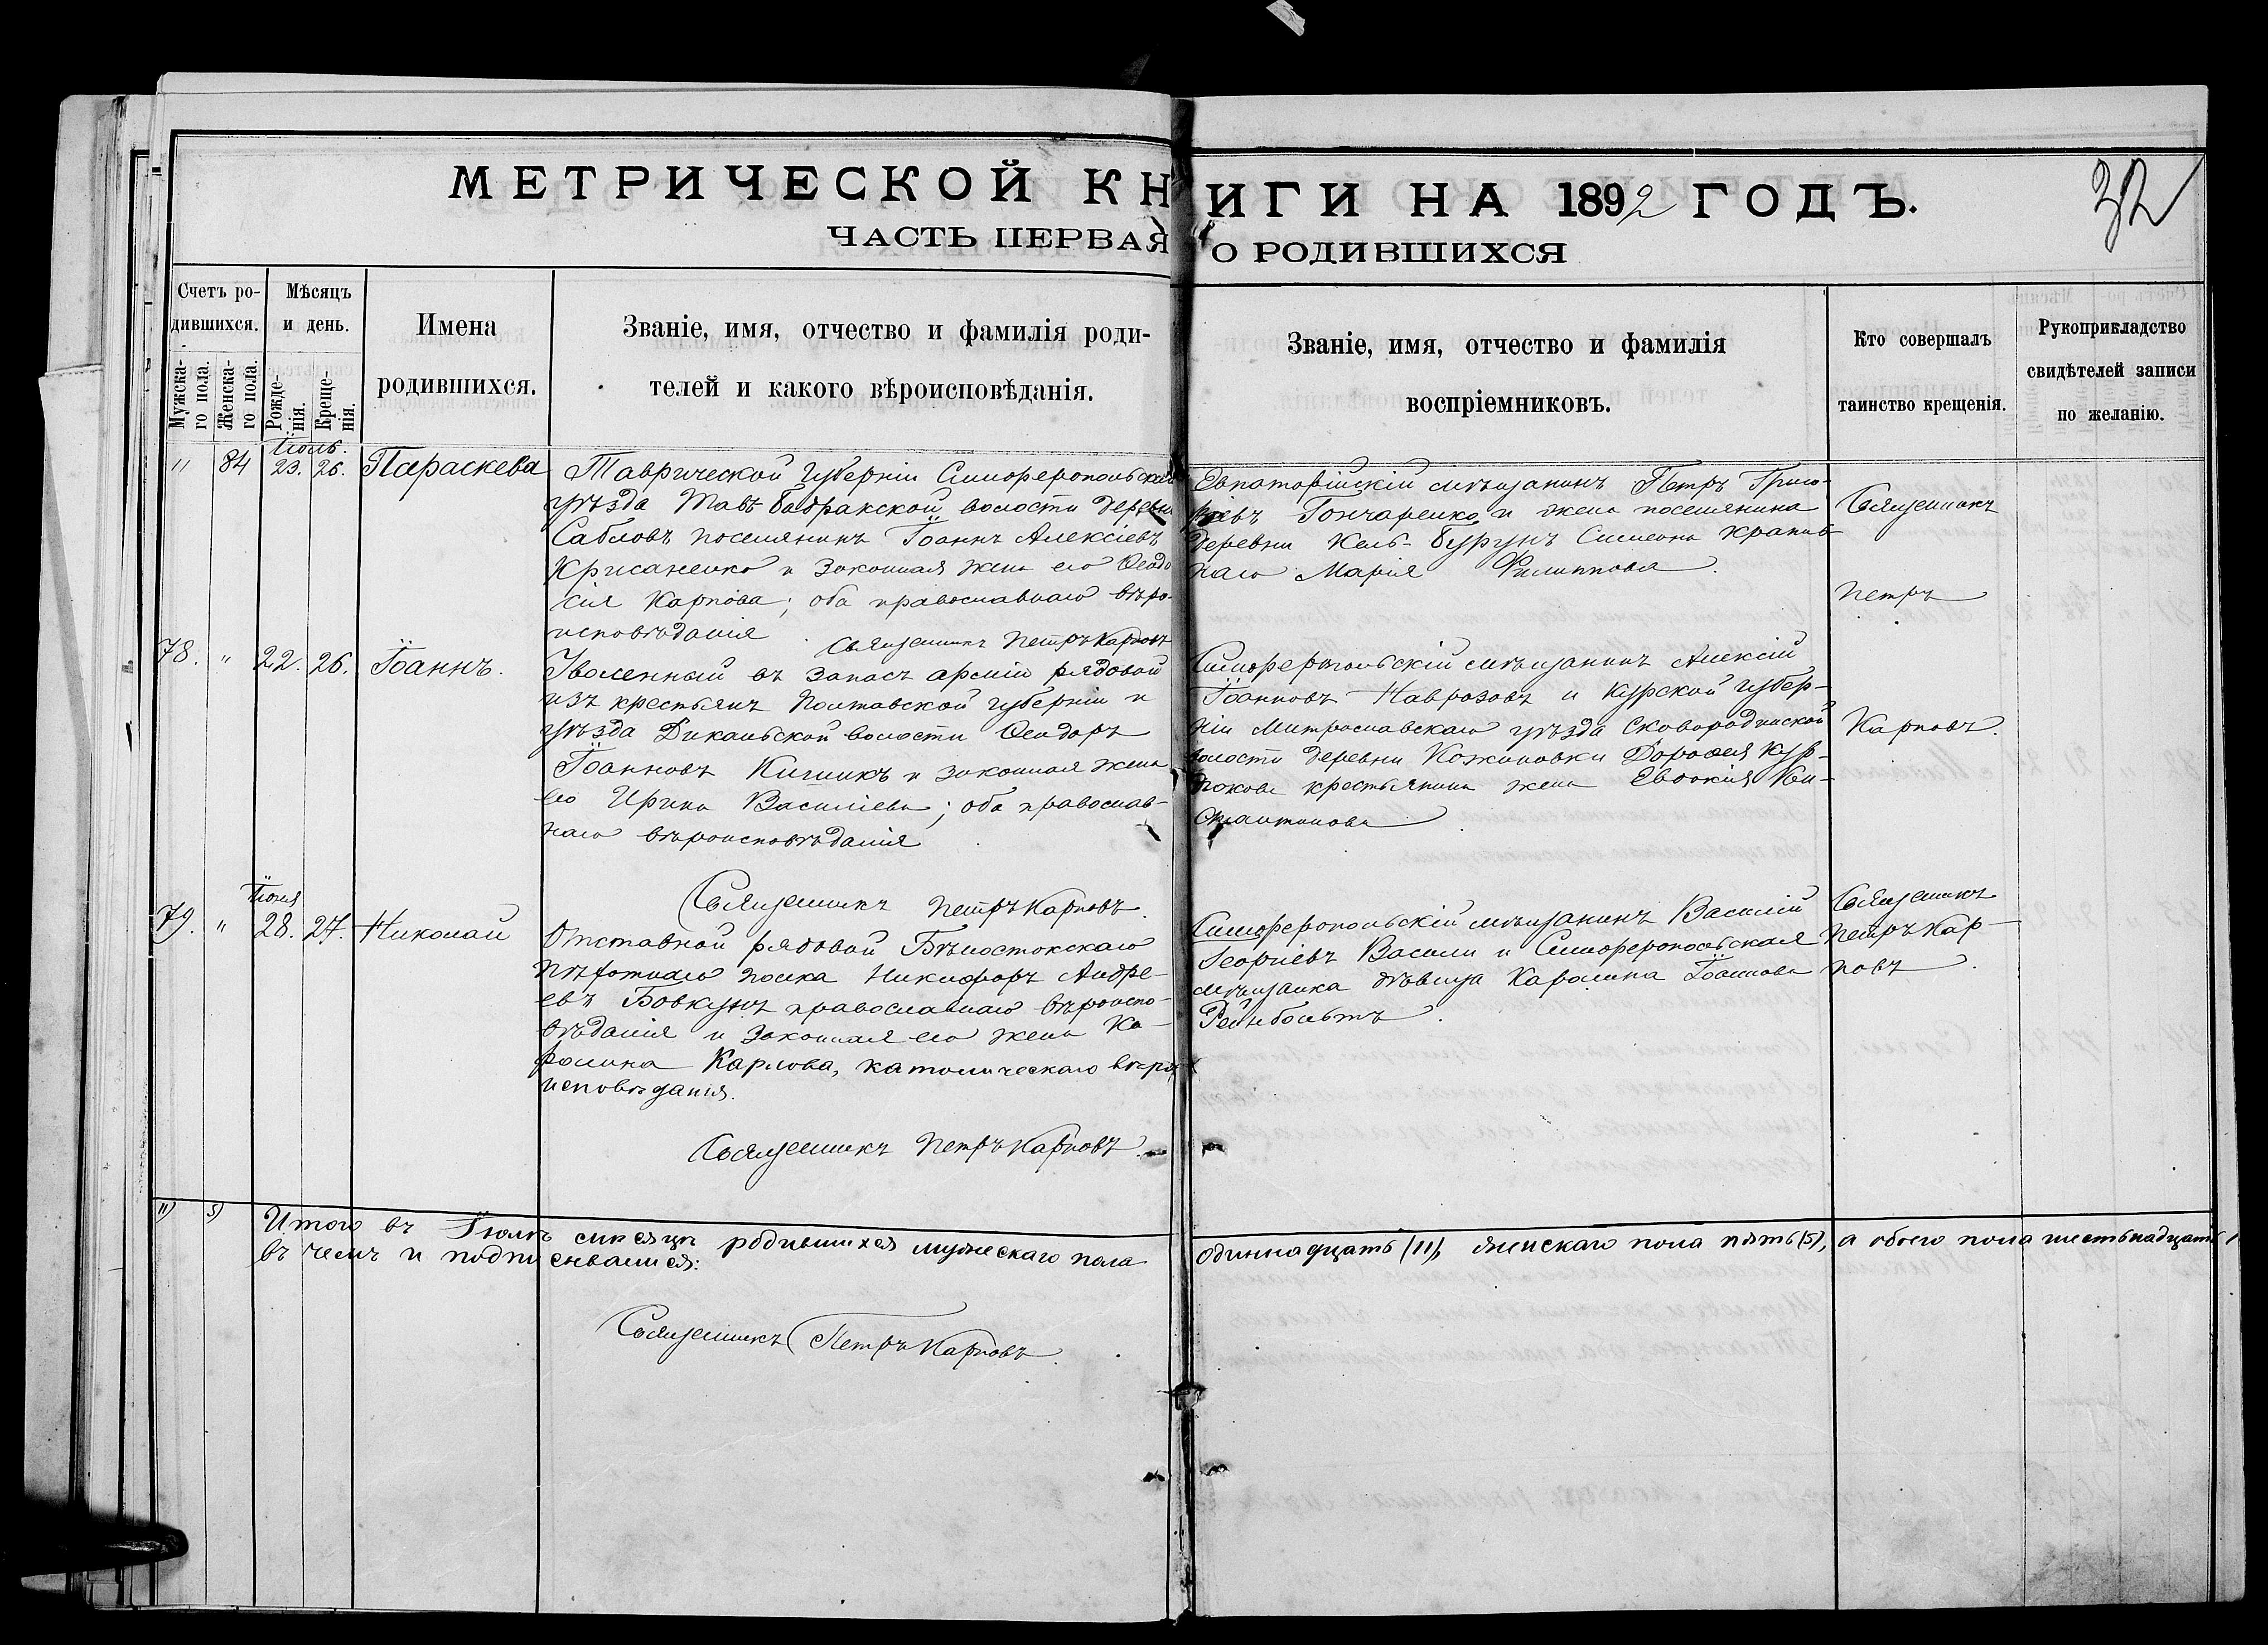 МЕТРИЧЕСКОЙ КНИГИ НА 1892 ГОДЪ.
32
ЧАСТЬ ПЕРВАЯ О РОДИВШИХСЯ
Счетъ родившихся.
Мужска-го пола.
Женска-го пола.
Мѣсяцъ и день.
Рожде-нія.
Креще-нія.
Имена
родившихся.
Званіе, имя, отчество и фамилія роди-
телей и какого вѣроисповѣданія.
Званіе, имя, отчество и фамилія
воспріемниковъ.
Кто совершалъ
таинство крещенія.
Рукоприкладство
свидѣтелей записи
по желанію.
Іюль.
" 84 23. 26. Параскева
Таврической губерніи Симферопольскаго
уѣзда Тавъ-Бадракской волости деревни
Сабловъ поселянинъ Іоаннъ Алексіевъ
Крисаненко и законная жена его Ѳеодо
сія Карпова; оба православнаго вѣро-
исповѣданія.
Священникъ Петръ Карповъ
Евпаторійскій мѣщанинъ Петръ Григо-
ріевъ Гончаренко и жена поселянина
деревни Кель-Бурунъ Симеона Крапив-
наго Марія Филиппова.
Священникъ
Петръ
Карповъ.
78. " 22. 26. Іоаннъ.
Уволенный въ запасъ арміи рядовой
изъ крестьянъ Полтавской губерніи и
уѣзда Диканьской волости Ѳеодоръ
Іоанновъ Кишикъ и законная жена
его Ирина Василіева; оба православ-
наго вѣроисповѣданія.
Священникъ Петръ Карповъ.
Симферопольскій мѣщанинъ Алексій
Іоанновъ Наврозовъ и Курской губер-
ніи Митрославскаго уѣзда Сковородинской
волости деревни Кожиновки Дорофея Кур-
покова крестьянина жена Евдокія Кон-
стантинова.
Іюня
79. " 28. 27. Николай
Отставной рядовой Бѣлостокскаго
пѣхотнаго полка Никифоръ Андре-
евъ Бовкунъ православнаго вѣроиспо-
вѣданія и законная его жена Ка-
ролина Карлова, католическаго вѣро-
исповѣданія.
Священникъ Петръ Карповъ.
Симферопольскій мѣщанинъ Василій
Георгіевъ Васили и Симферопольская
мѣщанка дѣвица Каролина Іоаннова
Рейнбольтъ.
Священникъ
Петръ Кар-
повъ.
11) 5) Итого въ Іюлѣ мѣсяцѣ родившихся мужескаго пола одиннадцать (11), женскаго пола пять (5), а обоего пола шестьнадцать
въ чемъ и подписываемся:
Священникъ Петръ Карповъ.